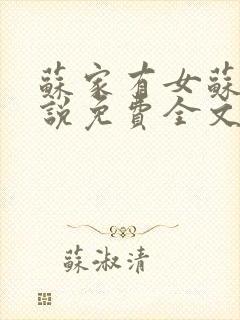 蘇家有女蘇
說免費全文
蘇淑清